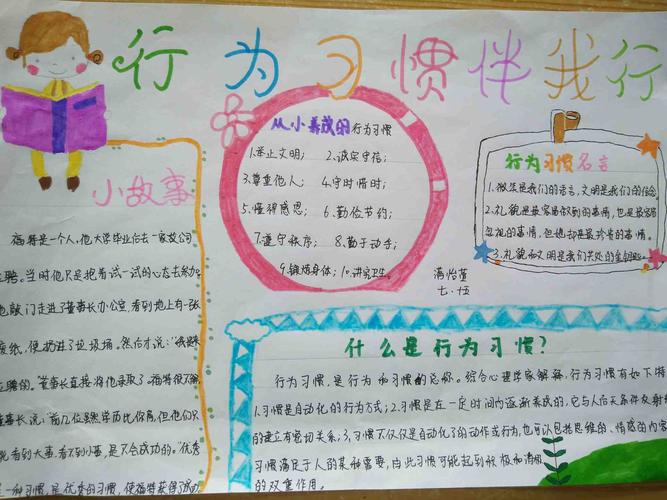 行为习惯伴我行
从小养成的行为习惯
1.举止文明; 2.诚实守信;
3.尊重他人; 4.守时惜时;
5.懂得感恩; 6.勤俭节约;
7.遵守秩序; 8.勤于动手;
9.锻炼身体; 10.讲究卫生。
行为习惯名言
1.微笑是我们的语言,文明是我们的信念
2.礼貌是最容易做到的事情,也是最容易
忽视的事情,但她却是最珍贵的事情。
3.礼貌和文明是我们共处的金钥匙
满怡萱
七.五
小故事
福特是一个人,他大学毕业后去一家公司
应聘。当时他只是抱着试一试的心态去努力
他敲门走进了董事长办公室,看到地上有一张
废纸,便扔进了垃圾桶。然后才说:"我是来
应聘的。"董事长直接将他录取了。福特很不解
董事长说:"前几位虽然学历比你高,但他们只
能看到大事,看不到小事,是不会成功的。"优秀
是一种习惯,是优秀的习惯,使福特获得了成功
什么是行为习惯?
行为习惯,是行为和习惯的总称。综合心理学家解释,行为习惯有如下特
1.习惯是自动化的行为方式;2.习惯是在一定时间内逐渐养成的,它与人后天条件反射
的建立有密切关系;3.习惯不仅仅是自动化了的动作或行为,也可以包括思维的、情感的内容
习惯满足于人的某种需要,由此习惯可能起到积极和消极
的双重作用。